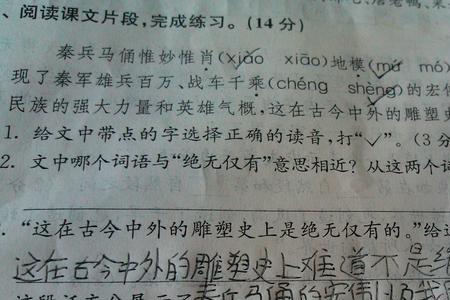 、阅读课文片段,完成练习。(14 分)
秦兵马俑惟妙惟肖(xiào xiāo)地模(mú mó)
现了秦军雄兵百万、战车千乘(chéng shèng)的宏伟
民族的强大力量和英雄气概,这在古今中外的雕塑史
1. 给文中带点的字选择正确的读音,打“✓”。(3 分
2. 文中哪个词语与“绝无仅有”意思相近?从这两个词
. “这在古今中外的雕塑史上是绝无仅有的。”给这
这在古今中外的雕塑史上难道不是绝